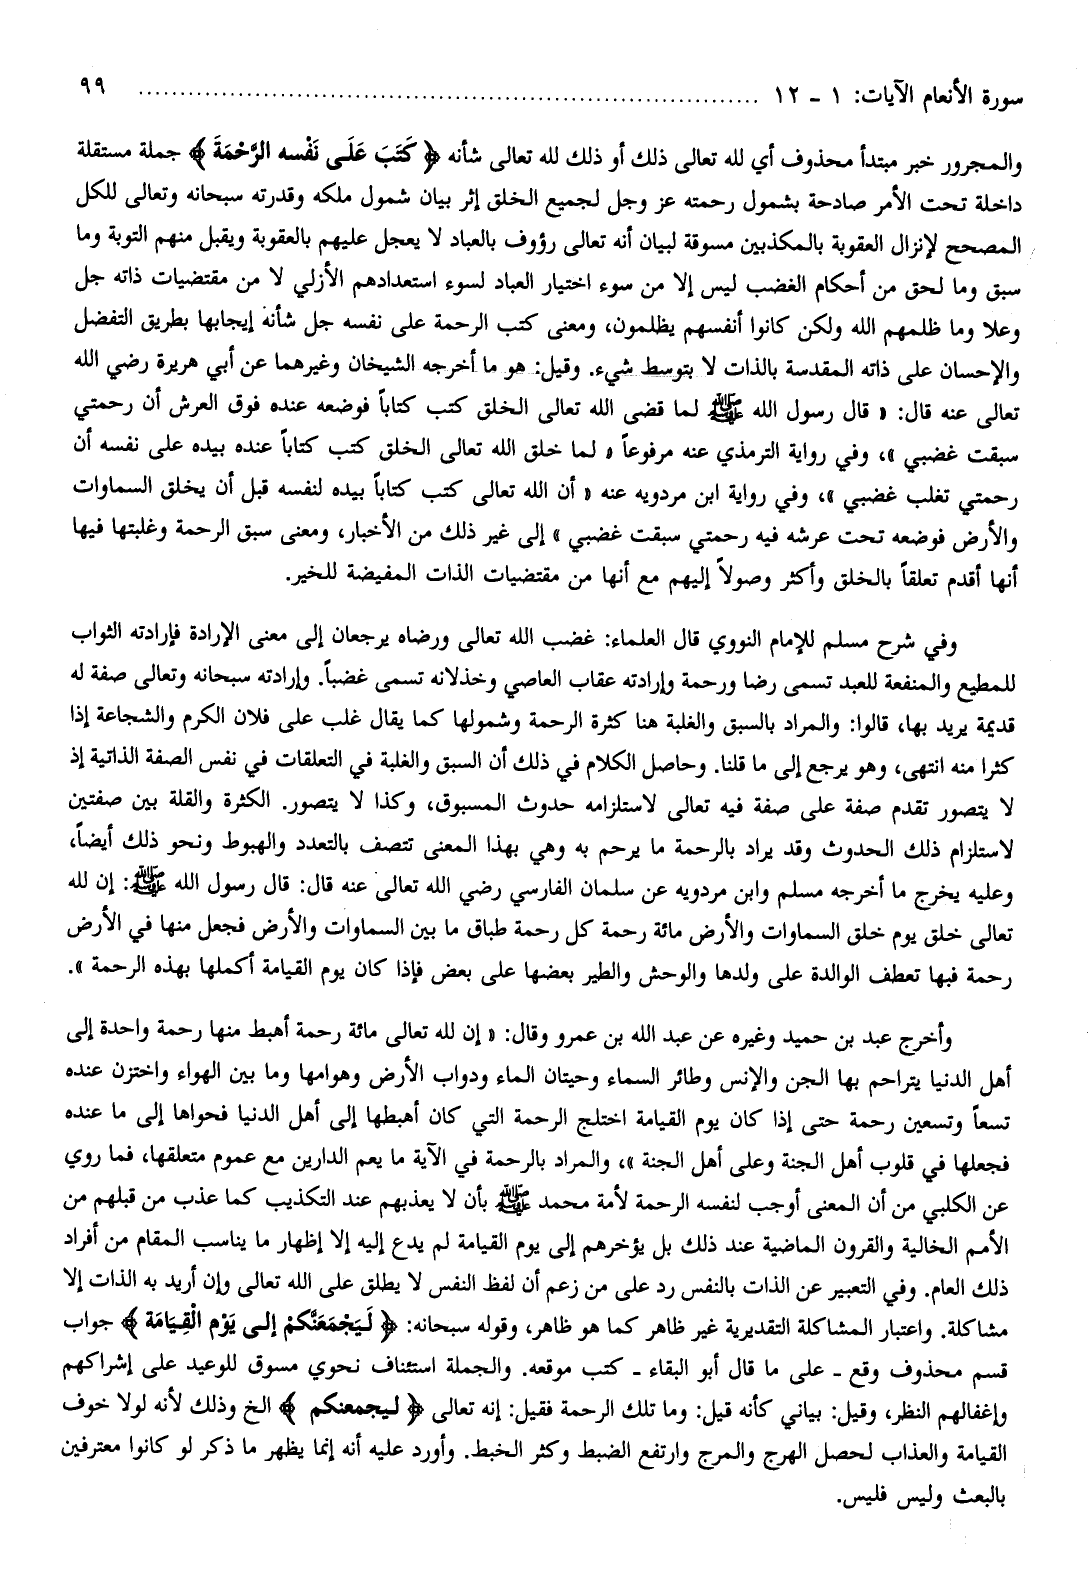 سورة الأنعام الآيات: ١ ـ ١٢ ........................................................................ ٩٩
والمجرور خبر مبتدأ محذوف أي لله تعالى ذلك أو ذلك لله تعالى شأنه ﴿ كَتَبَ عَلَى نَفْسه الرَّحْمَةَ ﴾ جملة مستقلة
داخلة تحت الأمر صادحة بشمول رحمته عز وجل لجميع الخلق إثر بيان شمول ملكه وقدرته سبحانه وتعالى للكل
المصحح لإنزال العقوبة بالمكذبين مسوقة لبيان أنه تعالى رؤوف بالعباد لا يعجل عليهم بالعقوبة ويقبل منهم التوبة وما
سبق وما لحق من أحكام الغضب ليس إلا من سوء اختيار العباد لسوء استعدادهم الأزلي لا من مقتضيات ذاته جل
وعلا وما ظلمهم الله ولكن كانوا أنفسهم يظلمون، ومعنى كتب الرحمة على نفسه جل شأنه إيجابها بطريق التفضل
والإحسان على ذاته المقدسة بالذات لا بتوسط شيء. وقيل: هو ما أخرجه الشيخان وغيرهما عن أبي هريرة رضي الله
تعالى عنه قال: « قال رسول الله ﷺ لما قضى الله تعالى الخلق كتب كتاباً فوضعه عنده فوق العرش أن رحمتي
سبقت غضبي »، وفي رواية الترمذي عنه مرفوعاً « لما خلق الله تعالى الخلق كتب كتاباً عنده بيده على نفسه أن
رحمتي تغلب غضبي »، وفي رواية ابن مردويه عنه « أن الله تعالى كتب كتاباً بيده لنفسه قبل أن يخلق السماوات
والأرض فوضعه تحت عرشه فيه رحمتي سبقت غضبي » إلى غير ذلك من الأخبار، ومعنى سبق الرحمة وغلبتها فيها
أنها أقدم تعلقاً بالخلق وأكثر وصولاً إليهم مع أنها من مقتضيات الذات المفيضة للخير.
وفي شرح مسلم للإمام النووي قال العلماء: غضب الله تعالى ورضاه يرجعان إلى معنى الإرادة فإرادته الثواب
للمطيع والمنفعة للعبد تسمى رضا ورحمة وإرادته عقاب العاصي وخذلانه تسمى غضباً. وإرادته سبحانه وتعالى صفة له
قديمة يريد بها، قالوا: والمراد بالسبق والغلبة هنا كثرة الرحمة وشمولها كما يقال غلب على فلان الكرم والشجاعة إذا
كثرا منه انتهى، وهو يرجع إلى ما قلنا. وحاصل الكلام في ذلك أن السبق والغلبة في التعلقات في نفس الصفة الذاتية إذ
لا يتصور تقدم صفة على صفة فيه تعالى لاستلزامه حدوث المسبوق، وكذا لا يتصور. الكثرة والقلة بين صفتين
لاستلزام ذلك الحدوث وقد يراد بالرحمة ما يرحم به وهي بهذا المعنى تتصف بالتعدد والهبوط ونحو ذلك أيضاً،
وعليه يخرج ما أخرجه مسلم وابن مردويه عن سلمان الفارسي رضي الله تعالى عنه قال: قال رسول الله ﷺ: إن لله
تعالى خلق يوم خلق السماوات والأرض مائة رحمة كل رحمة طباق ما بين السماوات والأرض فجعل منها في الأرض
رحمة فبها تعطف الوالدة على ولدها والوحش والطير بعضها على بعض فإذا كان يوم القيامة أكملها بهذه الرحمة ».
وأخرج عبد بن حميد وغيره عن عبد الله بن عمرو وقال: « إن لله تعالى مائة رحمة أهبط منها رحمة واحدة إلى
أهل الدنيا يتراحم بها الجن والإنس وطائر السماء وحيتان الماء ودواب الأرض وهوامها وما بين الهواء واختزن عنده
تسعاً وتسعين رحمة حتى إذا كان يوم القيامة اختلج الرحمة التي كان أهبطها إلى أهل الدنيا فحواها إلى ما عنده
فجعلها في قلوب أهل الجنة وعلى أهل الجنة »، والمراد بالرحمة في الآية ما يعم الدارين مع عموم متعلقها، فما روي
عن الكلبي من أن المعنى أوجب لنفسه الرحمة لأمة محمد ﷺ بأن لا يعذبهم عند التكذيب كما عذب من قبلهم من
الأمم الخالية والقرون الماضية عند ذلك بل يؤخرهم إلى يوم القيامة لم يدع إليه إلا إظهار ما يناسب المقام من أفراد
ذلك العام. وفي التعبير عن الذات بالنفس رد على من زعم أن لفظ النفس لا يطلق على الله تعالى وإن أريد به الذات إلا
مشاكلة. واعتبار المشاكلة التقديرية غير ظاهر كما هو ظاهر، وقوله سبحانه: ﴿ لَيَجْمَعَنَّكمْ إلى يَوْم الْقيَامَة ﴾ جواب
قسم محذوف وقع ـ على ما قال أبو البقاء ـ كتب موقعه. والجملة استئناف نحوي مسوق للوعيد على إشراكهم
وإغفالهم النظر، وقيل: بياني كأنه قيل: وما تلك الرحمة فقيل: إنه تعالى ﴿ ليجمعنكم ﴾ الخ وذلك لأنه لولا خوف
القيامة والعذاب لحصل الهرج والمرج وارتفع الضبط وكثر الخبط. وأورد عليه أنه إنما يظهر ما ذكر لو كانوا معترفين
بالبعث وليس فليس.